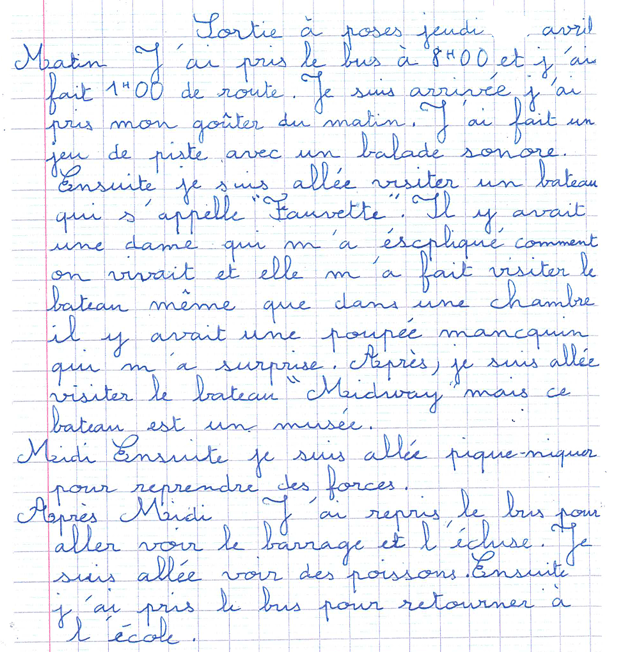 Sortie à poses jeudi avril
Matin J'ai pris le bus à 8H00 et j'ai
fait 1H00 de route. Je suis arrivée j'ai
pris mon goûter du matin. J'ai fait un
jeu de piste avec un balade sonore.
Ensuite je suis allée visiter un bateau
qui s'appelle "Fauvette". Il y avait
une dame qui m'a éscpliqué comment
on vivait et elle m'a fait visiter le
bateau même que dans une chambre
il y avait une poupée mancquin
qui m'a surprise. Après, je suis allée
visiter le bateau "Midway" mais ce
bateau est un musée.
Midi Ensuite je suis allé pique-niquer
pour reprendre des forces.
Après Midi J'ai repris le bus pour
aller voir le barrage et l'écluse. Je
suis allée voir des poissons. Ensuite
j'ai pris le bus pour retourner à
l'école.